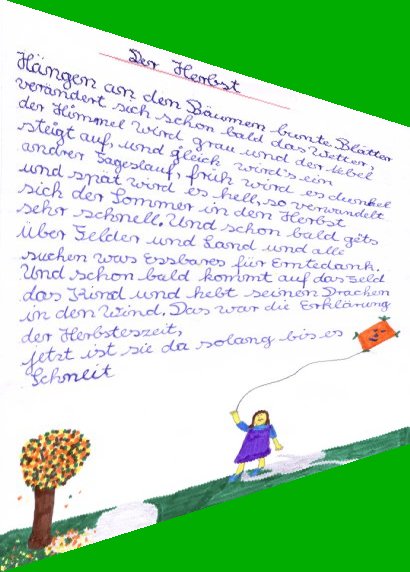 Der Herbst
Hängen an den Bäumen bunte Blätter
verändert sich schon bald das Wetter,
der Himmel wird grau und der Nebel
steigt auf, und gleich wird's ein
andrer Tageslauf, früh wird es dunkel
und spät wird es hell, so verwandelt
sich der Sommer in den Herbst
sehr schnell. Und schon bald gets
über Felder und Land und alle
suchen was Essbares für Erntedank.
Und schon bald kommt auf das Feld
das Kind und hebt seinen Drachen
in den Wind. Das war die Erklärung
der Herbsteszeit,
jetzt ist sie da solang bis es
Schneit